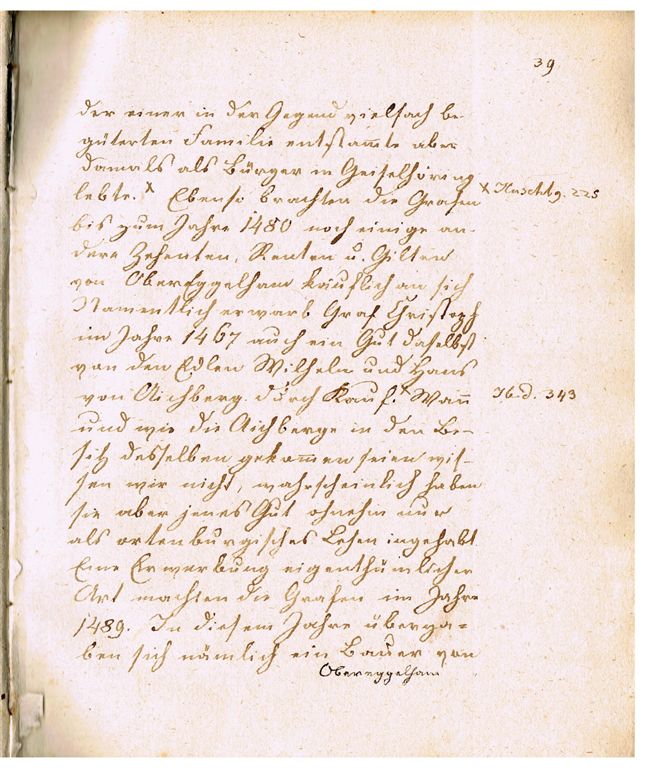 39
der einer in der Gegend vielfach be-
güterten Familie entstam̅te aber
damals als Bürger in Geiselhöring
lebte. x Ebenso brachten die Grafen
x Huschbg. 225
bis zum Jahre 1480 noch einige an-
dere Zehenten, Renten u. Gilten
von Obereggelham käuflich an sich
Namentlich erwarb Graf Christoph
im Jahre 1467 auch ein Gut daselbst
von den Edlen Wilhelm und Hans
von Aichberg durch Kauf. x Wan̅
Ibd. 343
und wie die Aichberge in den Be-
sitz desselben gekom̅en seien wis-
sen wir nicht, wahrscheinlich haben
sie aber jenes Gut ohnehin nur
als ortenburgisches Lehen ingehabt
Eine Erwerbung eigenthümlicher
Art machten die Grafen im Jahre
1489. In diesem Jahre überga=
ben sich nämlich ein Bauer von
Obereggelham